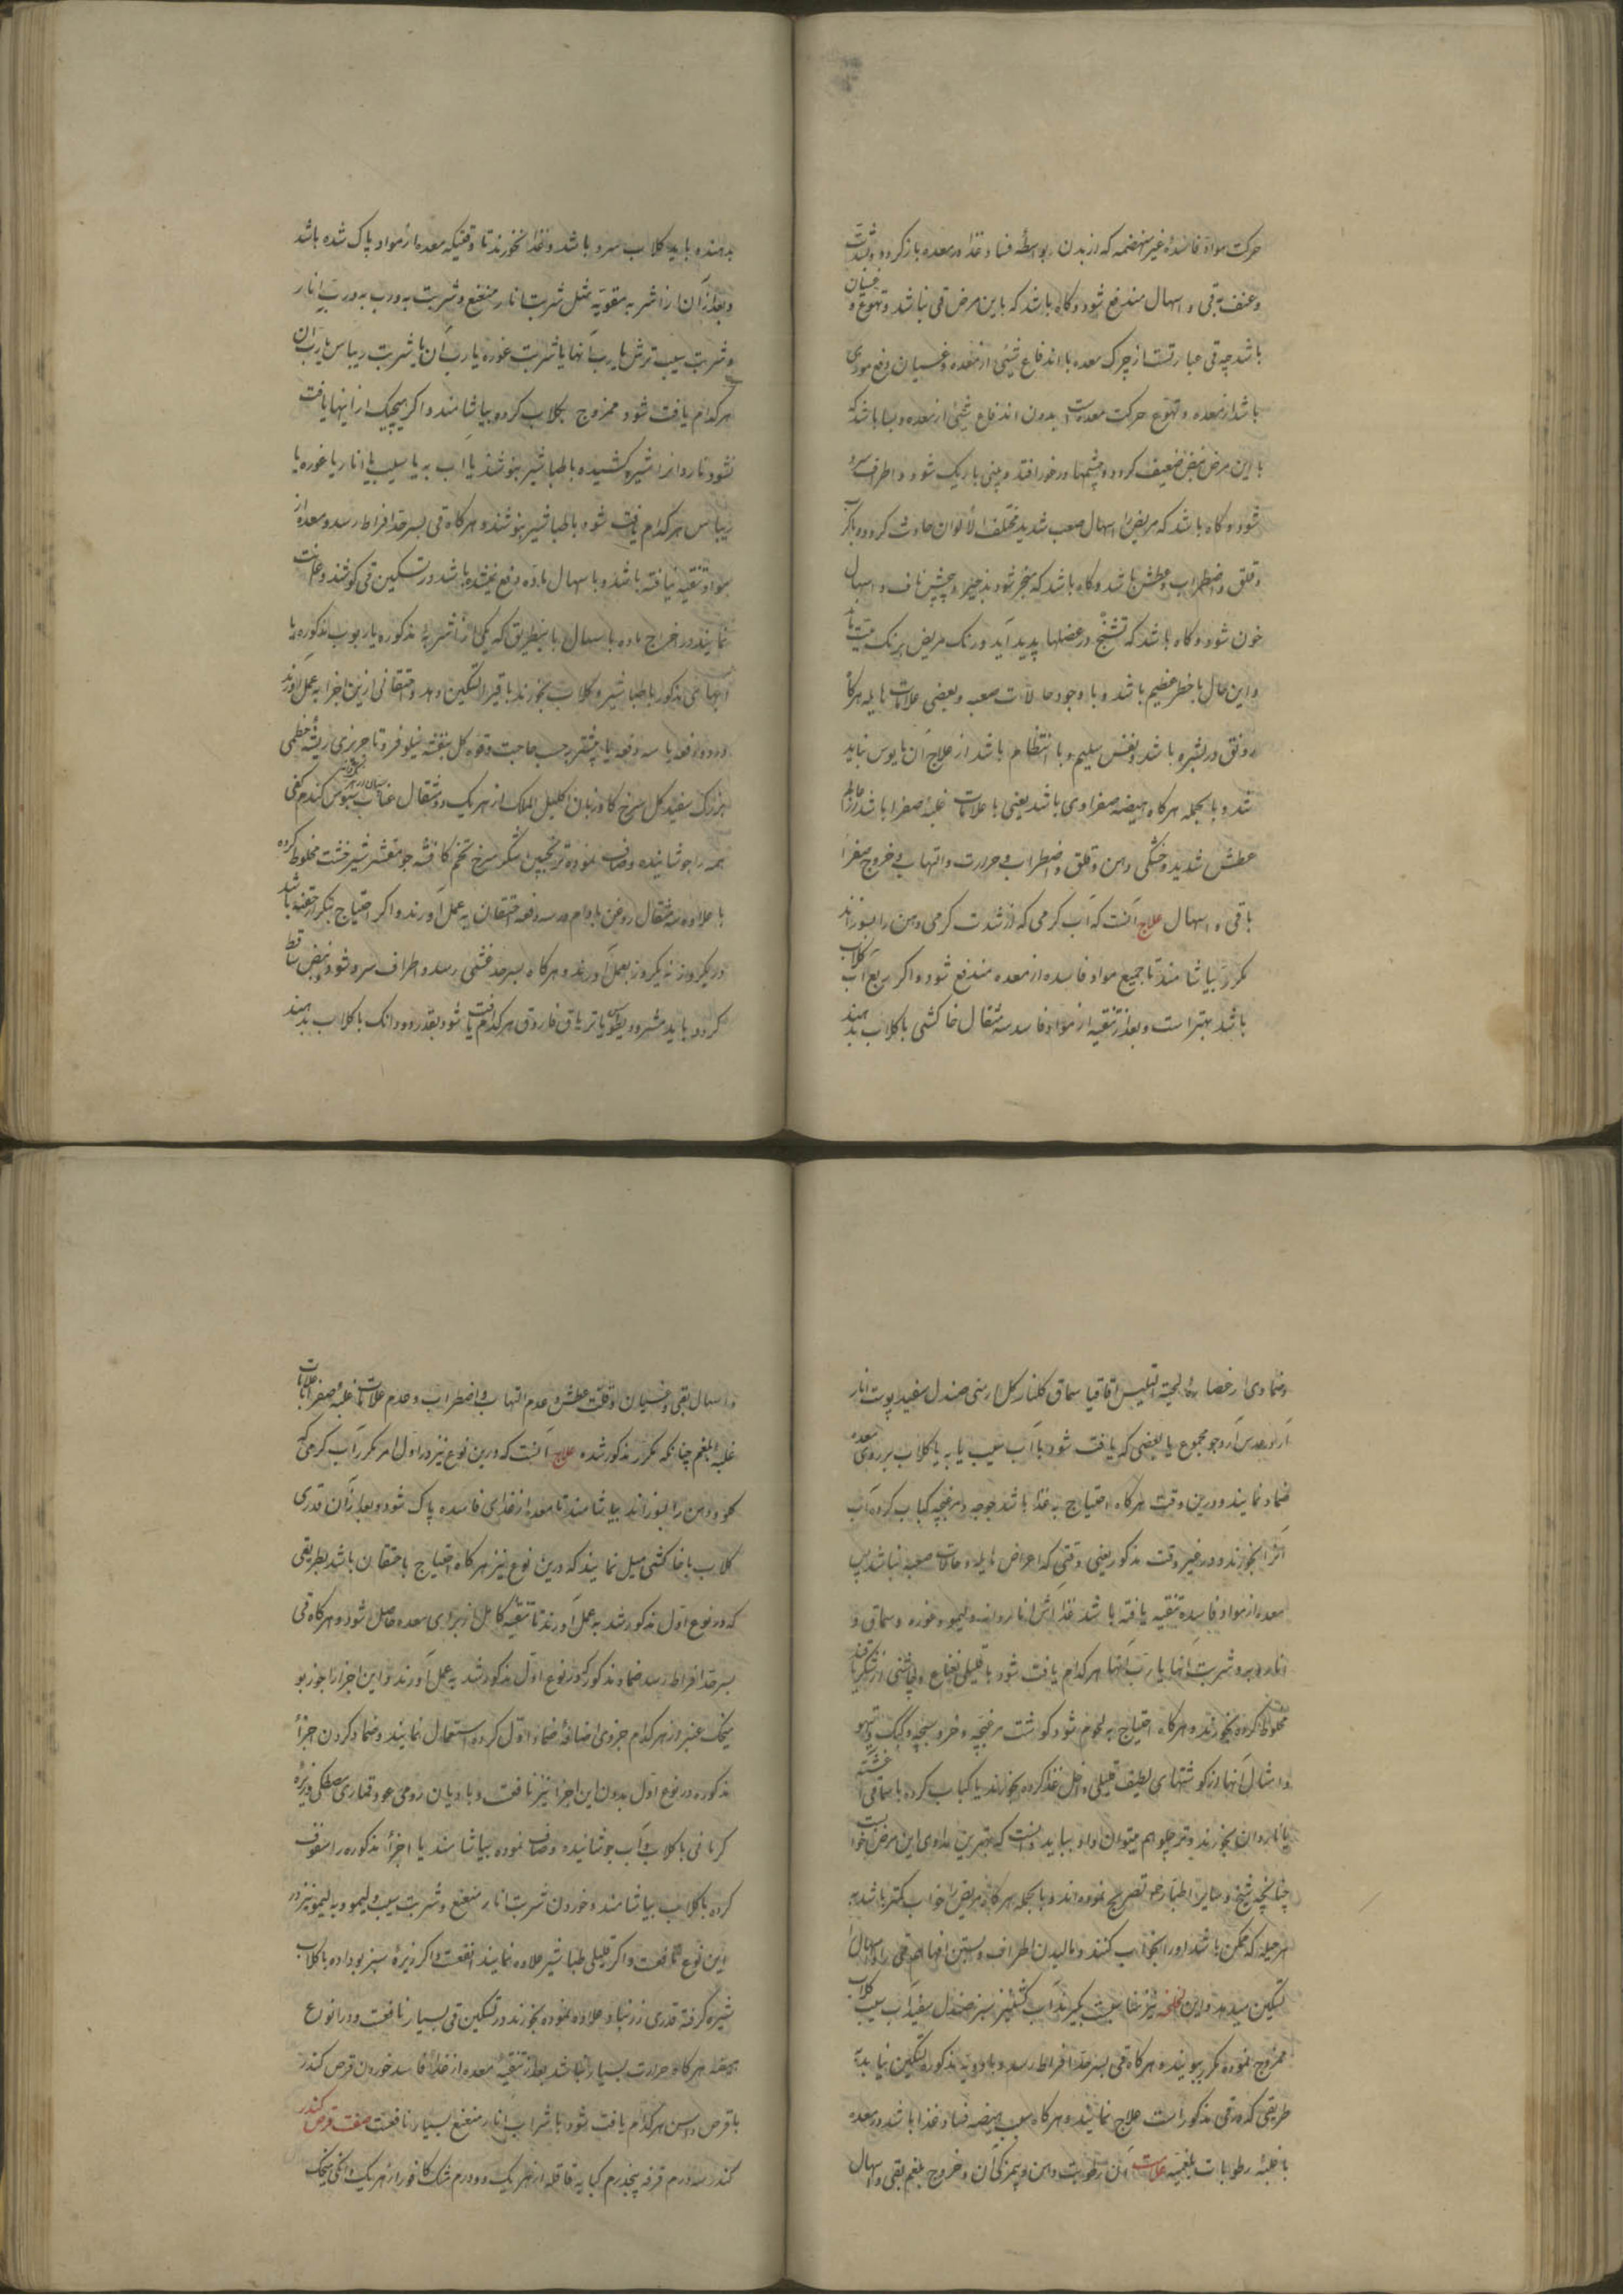 حرکت مواد فاسدهٔ غیر منهضمه که از بدن بواسطهٔ فساد غذا در معده باز کردد و بشدت
و عنف بقی و اسهال مندفع شود و کاه باشد که باین مرض قی نباشد و تهوع و غثیان
باشد چه قی عبارتست از حرکت معده با اندفاع شیئی از معده و غثیان دفع موذی
باشد از معده و تهوع حرکت معده است بدون اندفاع شیئی از معده و بسا باشد که
با این مرض نبض ضعیف کردد و چشمها در غور افتد و بینی باریک شود و اطراف سرد
شود و کاه باشد که مریض را اسهال صعب شدید مختلف الالوان حادث کردد با کرب
و قلق و اضطراب و عطش باشد و کاه باشد که منجر شود بزحیر و پیچش ناف و اسهال
خون شود و کاه باشد که تشنج در عضلها پدید آید و رنک مریض برنک میت باشد
و این حال با خطر عظیم باشد و با وجود حالات صعبه و بعضی علامات هایله هرکاه
رونق در بشره باشد و نفس سلیم و با انتظام باشد از علاج آن مایوس نباید
شد و بالجمله هرکاه هیضه صفراوی باشد یعنی با علامات غلبهٔ صفرا باشد از
عطش شدید و خشکی دهن و قلق و اضطراب و حرارت و التهاب و خروج صفرا
باقی و اسهال علاج آنست که آب کرمی که از شدت کرمی دهن را بسوزاند
مکرر بیاشامند تا جمیع مواد فاسده از معده مندفع شود و اکر ربع آب کلاب
باشد بهتر است و بعد از تنقیه از مواد فاسد سه مثقال خاکشی با کلاب بدهند
بدهند باید کلاب سرد باشد و غذا نخورند تا وقتیکه معده از مواد پاک شده باشد
و بعد از آن از اشربه مقویه مثل شربت انار منعنع و شربت به و رب به و رب انار
و شربت سیب ترش یا رب آنها یا شربت غوره یا رب آن یا شربت ریباس یا رب آن
هرکدام یافت شود ممزوج بکلاب کرده بیاشامند و اکر هیچیک از اینها یافت
نشود ناردانرا شیره کشیده با طباشیر بنوشند یا آب به یا سیب یا انار یا غوره یا
ریباس هرکدام یافت شود با طباشیر بنوشند و هرکاه قی بسرحد افراط رسد و معده از
مواد تنقیه نیافته باشد و باسهال ماده دفع نشده باشد در تسکین قی کوشند و اعانت
نمایند در اخراج ماده باسهال باینطریق که یکی از اشربهٔ مذکوره یا ربوب مذکوره یا
آبهای مذکور با طباشیر و کلاب بخورند تا قی را تسکین دهد و حقنهٔ از این اجزا بعمل آورند
دو دفعه یا سه دفعه یا بیشتر برحسب حاجت و قوه کل بنفشه نیلوفر تاجریزی ریشهٔ خطمی
بزرک سفید کل سرخ کاوزبان اکلیل الملک از هریک دو مثقال عناب سپستان سبوس کندم کفی
همه را جوشانیده و صاف نموده ترنجبین شکر سرخ تخم کافشه جو مقشر شیرخشت مخلوط کرده
با علاوه سه مثقال روغن بادام در سه دفعه حقنه بعمل آورند و اکر احتیاج بتکرار حقنه باشد
در یکروز نه یکروز بعمل آورند و هرکاه بسرحد غشی رسد و اطراف سرد شود و نبض ساقط
کردد باید مثرودیطوس یا تریاق فاروق هرکدام یافت شود بقدر دو دانک با کلاب بدهند
و ضمادی از عصارهٔ لحیة التیس اقاقیا سماق کلنار کل ارمنی صندل سفید پوست انار
آرد عدس آرد جو مجموع یا بعضی که یافت شود با آب سیب یا به یا کلاب بر روی معده
ضماد نمایند و درین وقت هرکاه احتیاج به غذا باشد جوجه و مرغچه کباب کرده آب
آنرا بخورند و در غیر وقت مذکور یعنی وقتی که اعراض هایله و حالات صعبه نباشد پس
معده از مواد فاسده تنقیه یافته باشد غذا آش انار دانه و لیمو و غوره و سماق و
انار و به و شربت آنها یا رب آنها هرکدام یافت شود با قلیلی نعناع و چاشنی از شکر یا قند
مخلوط کرده بخورند و هرکاه احتیاج به لحوم شود کوشت مرغچه و خروسچه و کبک و تیهو
و امثال آنها از کوشتهای لطیف قلیلی داخل غذا کرده بخورند یا کباب کرده با سماق آغشته
یا ناردان بخورند و تمرجلو هم میتوان داد و باید دانست که بهترین مداوای این مرض خوابست
چنانچه شیخ و سایر اطبا بر او تصریح نموده اند و بالجمله هرکاه مریض را خواب کمتر باشد به
هر حیله که ممکن باشد او را بخواب کنند و مالیدن اطراف و بستن آنها هم قی را و اسهال را
تسکین میدهد و این لخلخه نیز مناسبست بکیرند آب کشنیز سبز صندل سفید آب سیب کلاب
ممزوج نموده مکرر ببویند و هرکاه قی بسرحد افراط رسد و بادویه مذکوره تسکین نیابد به
طریقی که در قی مذکور است علاج نمایند و هرکاه سبب هیضه فساد غذا باشد در معده
با غلبهٔ رطوبات بلغمیه علامت آن رطوبت دهن و بیمزکی آن و خروج بلغم بقی و اسهال
و اسهال بقی و غثیان و قلت عطش و عدم التهاب و اضطراب و عدم علامات غلبهٔ صفرا با علامات
غلبهٔ بلغم چنانکه مکرر مذکور شده علاج آنست که درین نوع نیز در اول امر مکرر آب کرمی که
کلو و دهن را بسوزاند بیاشامند تا معده از غذای فاسده پاک شود و بعد از آن قدری
کلاب با خاکشی میل نمایند که درین نوع نیز هرکاه احتیاج باحتقان باشد بطریقی
که در نوع اول مذکور شد به عمل آورند تا تنقیهٔ کامل از برای معده حاصل شود و هرکاه قی
بسرحد افراط رسد ضماد مذکور که در نوع اول مذکور شد به عمل آورند و این اجزا را جوزبو
میخک عنبر از هرکدام جزوی اضافهٔ ضماد اول کرده استعمال نمایند و ضماد کردن اجزاء
مذکوره در نوع اول بدون این اجزا نیز نافعست و بادیان رومی عود قماری مصطکی زیرهٔ
کرمانی با کلاب و آب جوشانیده و صاف نموده بیاشامند یا اجزاء مذکوره را سفوف
کرده با کلاب بیاشامند و خوردن شربت انار منعنع و شربت سیب و لیمو و به لیمو نیز در
این نوع نافعست و اکر قلیلی طباشیر علاوه نمایند انفعست و اکر زیرهٔ سبز بوداده با کلاب
شیره کرفته قدری زرنباد علاوه نموده بخورند در تسکین قی بسیار نافعست و در انواع
هیضه هرکاه حرارت بسیار نباشد بعد از تنقیهٔ معده از غذاء فاسد خوردن قرص کندر
با قرص و سن هرکدام یافت شود با شراب انار منعنع بسیار نافعست صفت قرص کندر
کندر سه درم قرفه پنجدرم کبابه قاقله از هریک دو درم مشک کافور از هریک دانکی میخک